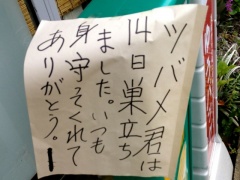 ツバメ君は
14日巣立ち
ました。いつも
身守ってくれて
ありがとう。!